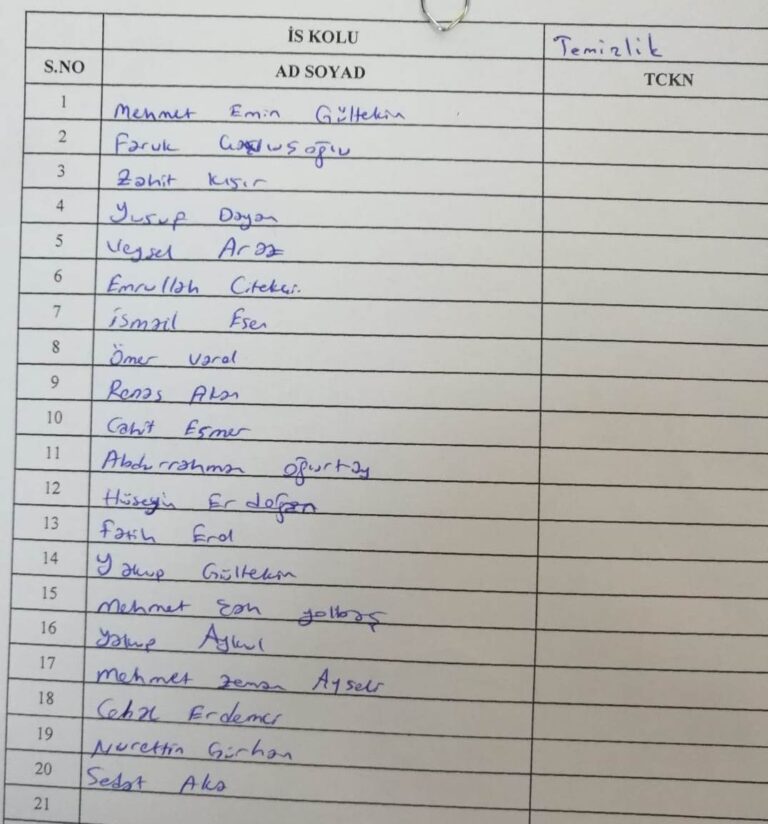 İS KOLU Temizlik
S.NO AD SOYAD TCKN
1 Mehmet Emin Gültekin
2 Faruk
3 Zahit Kışır
4 Yusup Dayan
5 Veysel Araz
6 Emrullah Citekçi.
7 İsmail Esen
8 Ömer Varol
9 Renas Akan
10 Cahit Eşmer
11 Abdurrahman Oğurtay
12 Hüseyin Erdoğan
13 Fatih Erol
14 Yakup Gültekin
15 Mehmet Can yolbaş
16 Yakup Aykul
17 Mehmet zeman Ayseli
18 Erdemci
19 Nurettin Gürhan
20 Sedat Aka
21